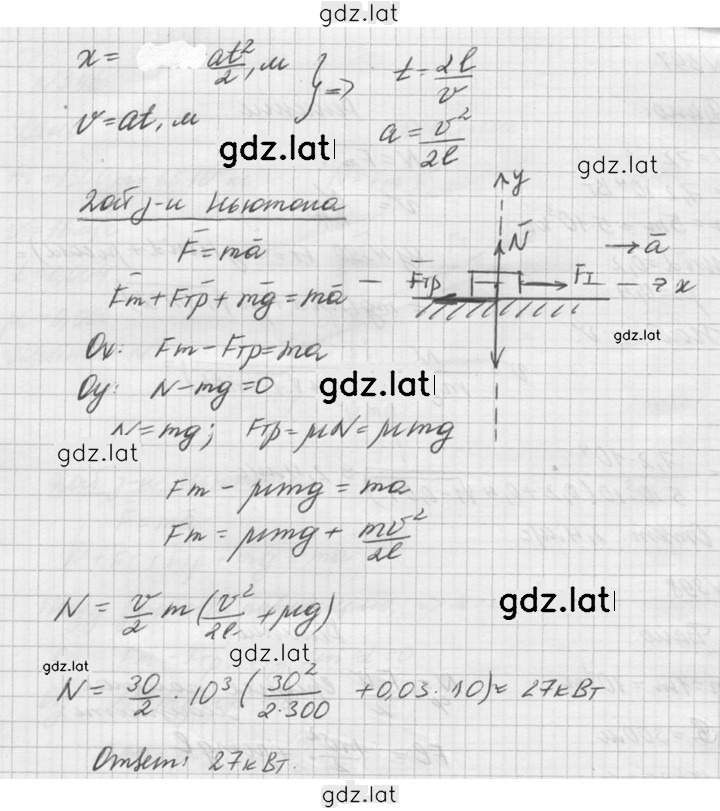 gdz.lat
x = at²/2, м } => t = 2l/v
v = at, м
a = v²/2l
gdz.lat
gdz.lat
2ой з-н Ньютона
y
N̄
ā
F̄тр
F̄т
x
F̄ = mā
F̄т + F̄тр + mḡ = mā
gdz.lat
Ox: Fт - Fтр = ma
Oy: N - mg = 0
gdz.lat
N = mg; Fтр = μN = μmg
gdz.lat
Fт - μmg = ma
Fт = μmg + mv²/2l
gdz.lat
N = v/2 m (v²/2l + μg)
gdz.lat
gdz.lat
N = 30/2 · 10³ (30²/2·300 + 0,03 · 10) = 27кВт
Ответ: 27кВт.
gdz.lat